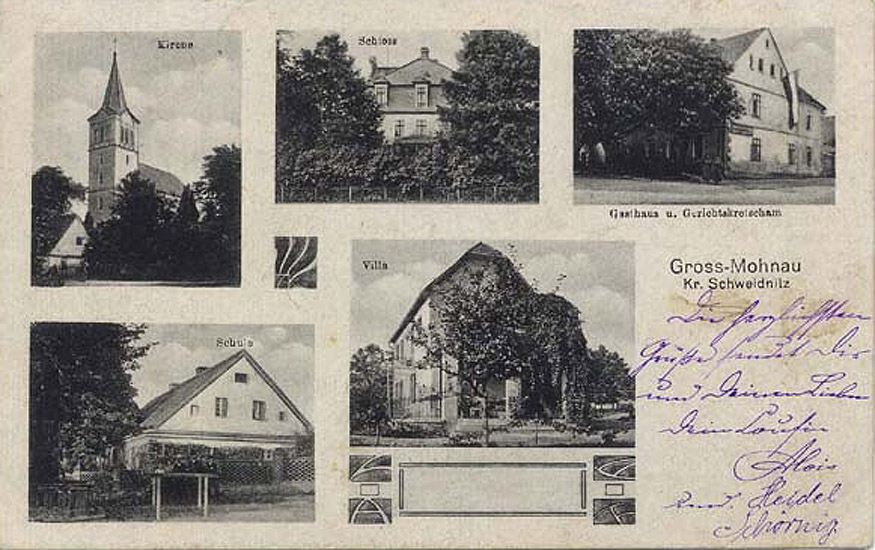 Kirche
Schloss
Gasthaus u. Gerichtskretscham
Villa
Gross-Mohnau
Kr. Schweidnitz
Schule
Die herzlichsten
Grüße sendet Dir
und Deinen Lieben
Dein Cousin
Alois
und. Heidel